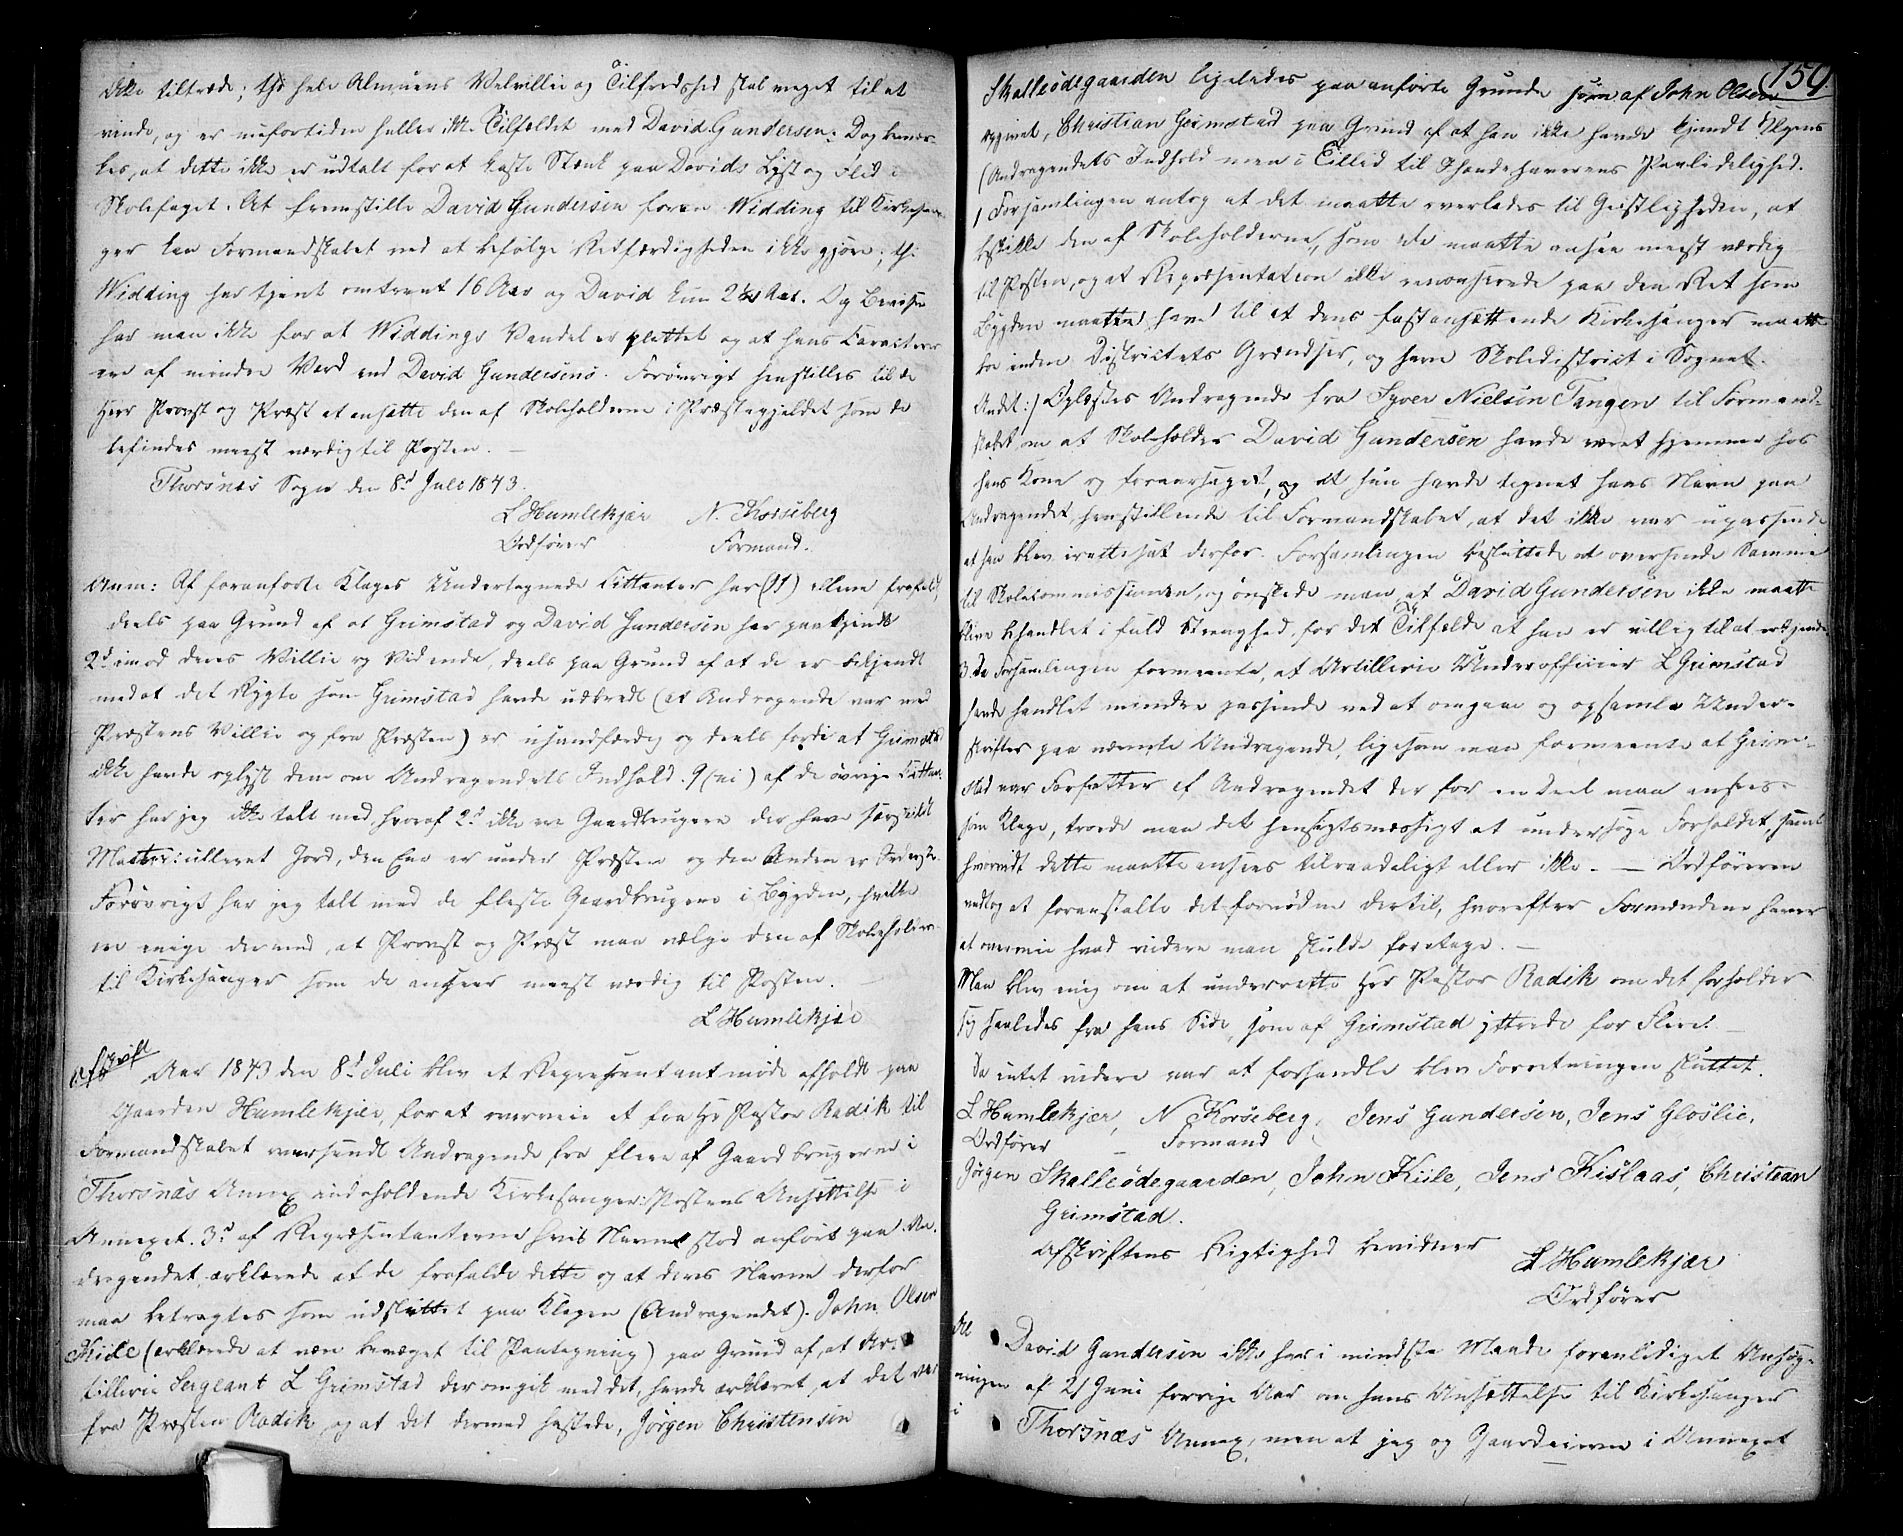 ikke tiltræde; thi hele Almuens Velvillie og Tilfredshed skal meget til at
vinde, og er mefortiden heller ikke Tilfældet med David Gundersen. Dog bemær-
kes, at dette ikke er udtalt for at kaste Stænk paa Davids Lyst og Flid i
Skolefaget. At fremstille David Gundersen foran Widding til Kirkesan-
ger kan Formandskabet ved at befølge Retfærdigheden ikke gjøre; thi
Widding har tjent omtrent 16 Aar og David kun 2½ Aar. Og Beviser
har man ikke for at Widdings Vandel er plettet og at hans Caracterer
ere af mindre Værd end David Gundersens. Forøvrigt henstilles til de
Herr Provst og Præst at ansætte den af Skoleholderne i Præstegjeldet som de
befindes meest værdig til Posten. —
Thorsnæs Sogn den 8d Juli 1843.
L Humlekjær N. Korseberg
Ordfører Formand.
Anm: Af foranførte Klages Undertegnede Littanter har (11) elleve frafaldt,
deels paa Grund af at Grimstad og David Gundersen har paategnet
2d imod deres Villie og Vidende, deels paa Grund af at de er bekjendt
med at det Rygte som Grimstad havde udbredt (at Andragende var med
Præstens Villie og fra Præsten) er usandfærdig og deels fordi at Grimstad
ikke havde oplyst dem om Andragendets Indhold. 9 (ni) af de øvrige Littan-
ter har jeg ikke talt med, hvoraf 2d ikke ere Gaardbrugere der have særskildt
Matriculleret Jord, den Ene er under Præsten og den Anden er
Forøvrigt har jeg talt med de fleste Gaardbrugere i Bygden, hvilke
ere enige dermed, at Provst og Præst maa vælge den af Skoleholderne
til Kirkesanger som de ansees meest værdig til Posten.
L Humlekjær
Afskrift
Aar 1843 den 8d Juli blev et Representantmøde afholdt paa
Gaarden Humlekjær, for at overveie et fra Hr Pastor Radik til
Formandskabet oversendt Andragende fra flere af Gaardbrugerne i
Thorsnæs Annex indeholdende Kirkesanger-Postens Ansættelse i
Annexet. 3d af Repræsentanterne hvis Navne stod anført paa An-
dragendet, erklærede at de frafalde dette og at deres Navne derfor
maa betragtes som udslettet paa Klagen (Andragendet). John Olsen
Kiile (erklærede at være bevæget til Paategning) paa Grund af, at Ar-
tillerie Sergeant L Grimstad der omgik med det, havde erklæret, at det var
fra Præsten Radik, og at det dermed hastede, Jørgen Christensen
159.
Skalleødegaarden ligeledes paa anførte Grunde som af John Olsen
opgivet, Christian Grimstad paa Grund af at han ikke havde kjendt
Andragendets Indhold men i Tillid til Ihændehaverens Paalidelighed.
Forsamlingen antog at det maatte overlades til Geistligheden, at
beskikke den af Skoleholderne, som de maatte ansee meest værdig
til Posten, og at Repræsentation ikke renonserede paa den Ret som
Bygden maatte have til at dens fastansættende Kirkesanger maatte
boe inden Districtets Grændser, og have Skoledistrict i Sognet.
Andet:/ Oplæstes Andragende fra Syver Nielsen Tangen til Formand-
skabet om at Skoleholder David Gundersen havde været hjemme hos
hans Kone og foraarsaget, og at hun havde tegnet hans Navn paa
Andragendet, henstillende til Formandskabet, at det ikke var upassende
at han blev irettesat derfor. Forsamlingen besluttede at oversende Samme
til Skolecommissionen, og ønskede man, at David Gundersen ikke maatte
blive behandlet i fuld Strenghed, for det Tilfælde at han er villig til at erkjende
3. De Forsamlingen formeente, at Artillerie Underofficier L Grimstad
havde handlet mindre passende ved at omgaae og opsamle Under-
skrifter paa nævnte Andragende, ligesom man formeente at Grim-
stad var Forfatter af Andragendet der for en Deel maa ansees
som Klage, troede man det hensigtsmæssigt at undersøge Forholdet, samt
hvorvidt dette maatte ansees tilraadeligt eller ikke. — Ordføreren
vedtog at foranstalte det fornødne dertil, hvorefter Formændene haver
at overveie hvad videre man skulde foretage. —
Man blev enig om at underrette Her Pastor Radik om det forholder
sig saaledes fra hans Side, som af Grimstad yttrede for Flere. —
Da intet videre var at forhandle blev Forretningen sluttet.
L Humlekjær, N Korseberg, Jens Gundersen, Jens Gloslie,
Ordfører — Formand
Jørgen Skalleødegaarden, John Kiile, Jens Kislaas, Christian
Grimstad.
Afskriftens Rigtighed bevidner
L Humlekjær
Ordfører
David Gundersen ikke har i mindste Maade foranlediget Ansøg-
ningen af 21 Juni forrige Aar om hans Ansættelse til Kirkesanger
i Thorsnæs Annex, men at jeg og Gaardeierne i Annexet